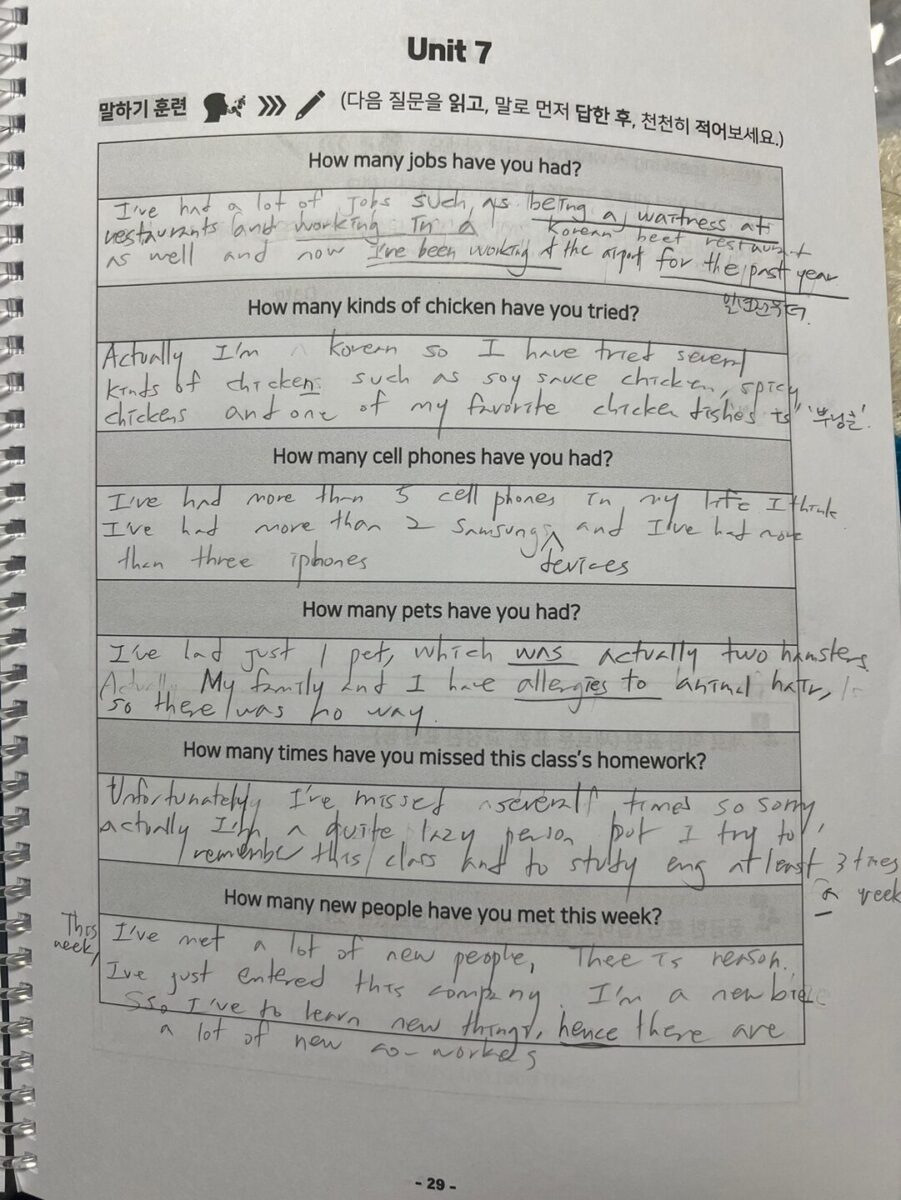 Unit 7
말하기 훈련 (다음 질문을 읽고, 말로 먼저 답한 후, 천천히 적어보세요.)
How many jobs have you had?
I've had a lot of jobs such as being a waitness at
restaurants and working in a Korean beef restaurant
as well and now I've been working at the airport for the past year
How many kinds of chicken have you tried?
Actually I'm a Korean so I have tried several
kinds of chicken such as soy sauce chicken, spicy
chickens and one of my favorite chicken dishes is '뿌링클'.
How many cell phones have you had?
I've had more than 5 cell phones in my life I think
I've had more than 2 Samsung devices and I've had more
than three iphones
How many pets have you had?
I've had just 1 pet, which was actually two hamsters
Actually My family and I have allergies to animal hair,
so there was no way.
How many times have you missed this class's homework?
Unfortunately I've missed several times so sorry,
actually I'm a quite lazy person but I try to
remember this class and to study eng at least 3 times
a week
How many new people have you met this week?
This week, I've met a lot of new people, There is reason.
I've just entered this company. I'm a newbie
So I've to learn new things, hence there are
a lot of new co-workers
- 29 -